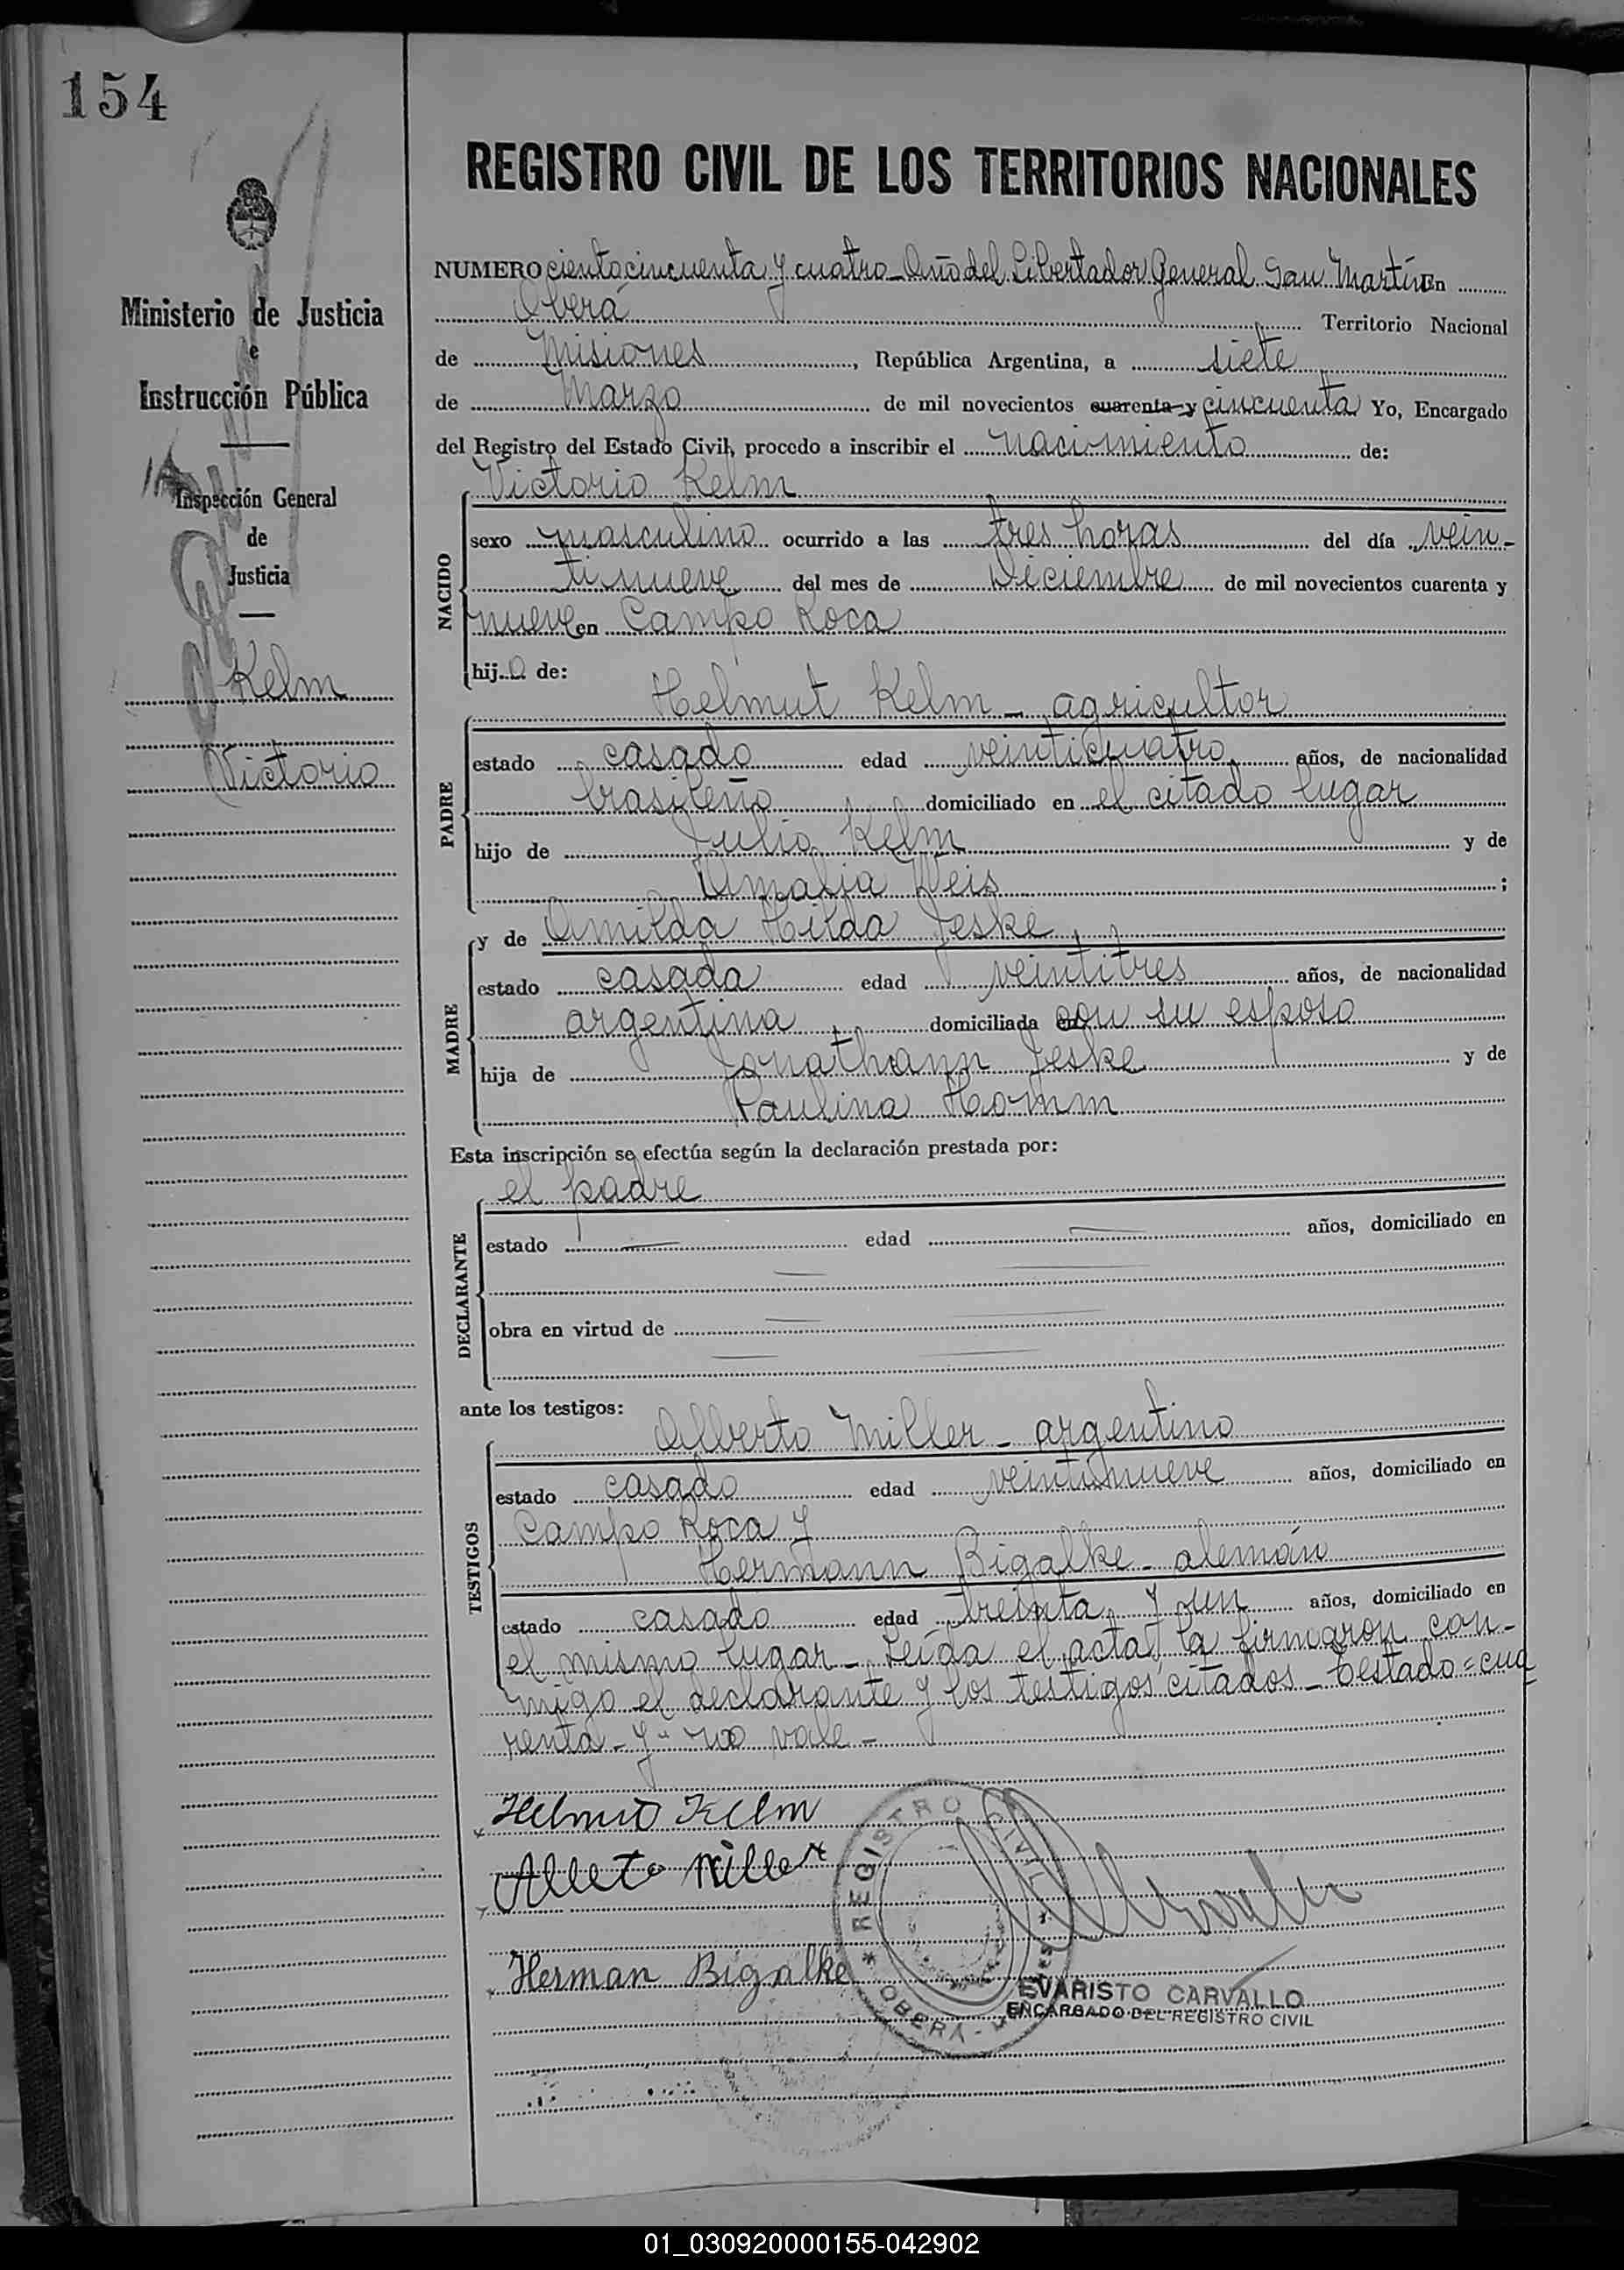 154
REGISTRO CIVIL DE LOS TERRITORIOS NACIONALES
Ministerio de Justicia
e
Instrucción Pública
Inspección General
de
Justicia
Kelm
Victorio
NUMERO ciento cincuenta y cuatro_Año del Libertador General San Martín En
Oberá Territorio Nacional
de Misiones, República Argentina, a siete
de Marzo de mil novecientos cuarenta y cincuenta Yo, Encargado
del Registro del Estado Civil, procedo a inscribir el nacimiento de:
Victorio Kelm
NACIDO
sexo masculino ocurrido a las tres horas del día vein-
tinueve del mes de Diciembre de mil novecientos cuarenta y
nueve en Campo Roca
hijo de:
Helmut Kelm _ agricultor
PADRE
estado casado edad veinticuatro años, de nacionalidad
brasileño domiciliado en el citado lugar
hijo de Julio Kelm y de
Amalia Weis ;
y de Amilda Hilda Jeske
MADRE
estado casada edad veintitres años, de nacionalidad
argentina domiciliada en con su esposo
hija de Jonathann Jeske y de
Paulina Hamm
Esta inscripción se efectúa según la declaración prestada por:
el padre
DECLARANTE
estado — edad — años, domiciliado en
obra en virtud de
ante los testigos:
Alberto Miller _ argentino
TESTIGOS
estado casado edad veintinueve años, domiciliado en
Campo Roca y
Hermann Bigalke _ alemán
estado casado edad treinta y un años, domiciliado en
el mismo lugar _ Leída el acta, la firmaron con-
migo el declarante y los testigos citados _ Testado = cua
renta _ y " no vale -
Helmut Kelm
Alberto Miller
Herman Bigalke
REGISTRO CIVIL
OBERA -
EVARISTO CARVALLO
ENCARGADO DEL REGISTRO CIVIL
01_030920000155-042902